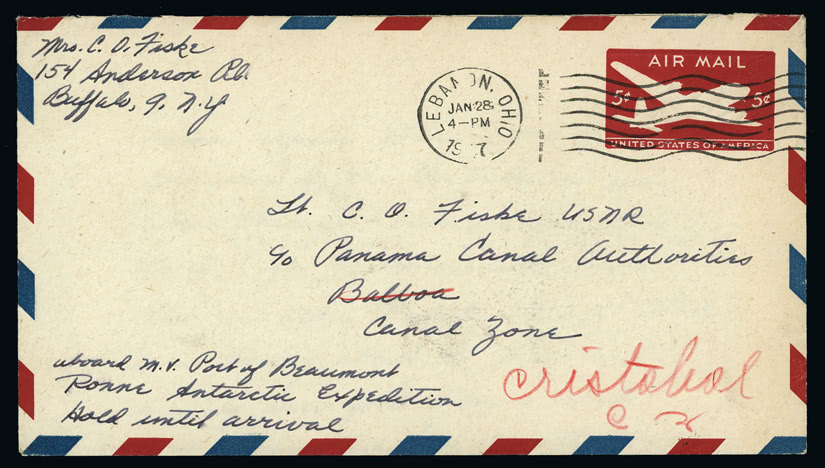 Mrs. C. O. Fiske
154 Anderson Pl.
Buffalo, 9, N.Y
LEBANON, OHIO
JAN 28
4-PM
AIR MAIL
5¢ 5¢
UNITED STATES OF AMERICA
Lt. C. O. Fiske USNR
c/o Panama Canal Authorities
Balboa
Canal Zone
aboard M.V. Port of Beaumont
Ronne Antarctic Expedition
Hold until arrival
Cristobal
C Z